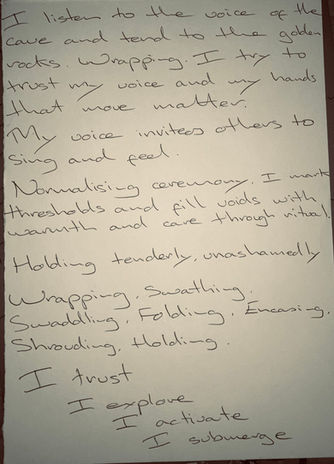 I listen to the voice of the
cave and tend to the golden
rocks. Wrapping. I try to
trust my voice and my hands
that move matter.
My voice invitees others to
Sing and feel.
Normalising ceremony. I mark
thresholds and fill voids with
warmth and care through ritual.
Holding tenderly, unashamedly
Wrapping, Swathing,
Swaddling, Folding, Encasing,
Shrouding, Holding.
I trust
I explore
I activate
I submerge